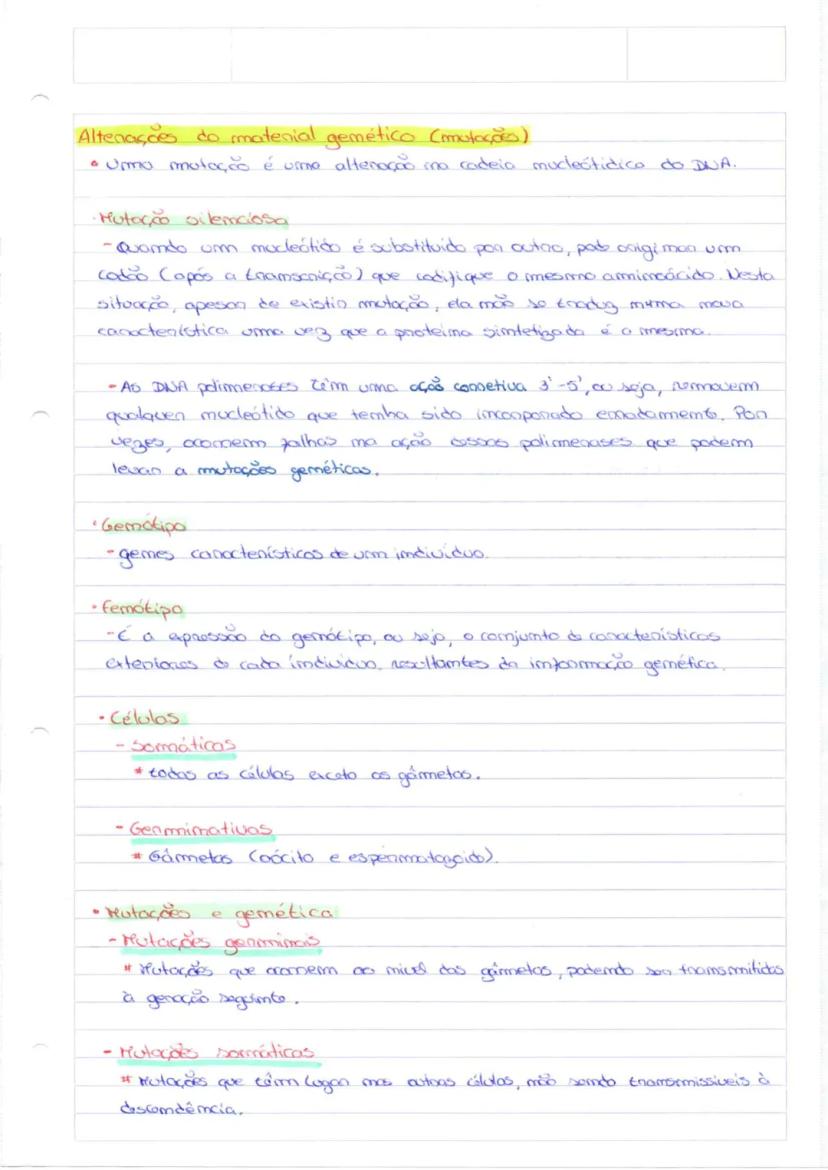 Alterações do material genético (mutações)
• Uma mutação é uma alteração na cadeia nucleotídica do DNA.
• Mutação silenciosa
- Quando um nucleótido é substituído por outro, pode originar um
codão (após a transcrição) que codifique o mesmo aminoácido. Nesta
situação, apesar de existir mutação, ela não se traduz numa nova
característica uma vez que a proteína sintetizada é a mesma.
- As DNA polimerases têm uma ação corretiva 3'-5', ou seja, removem
qualquer nucleótido que tenha sido incorporado erradamente. Por
vezes, ocorrem falhas na ação dessas polimerases que podem
levar a mutações genéticas.
• Genótipo
- genes característicos de um indivíduo.
• Fenótipo
- É a expressão do genótipo, ou seja, o conjunto de características
exteriores de cada indivíduo, resultantes da informação genética.
• Células
- Somáticas
* todas as células exceto os gâmetas.
- Germinativas
* Gâmetas (oócito e espermatozoido).
• Mutações e genética
- Mutações germinais
* Mutações que ocorrem ao nível dos gâmetas, podendo ser transmitidas
à geração seguinte.
- Mutações somáticas
* Mutações que têm lugar nas outras células, não sendo transmissíveis à
descendência.